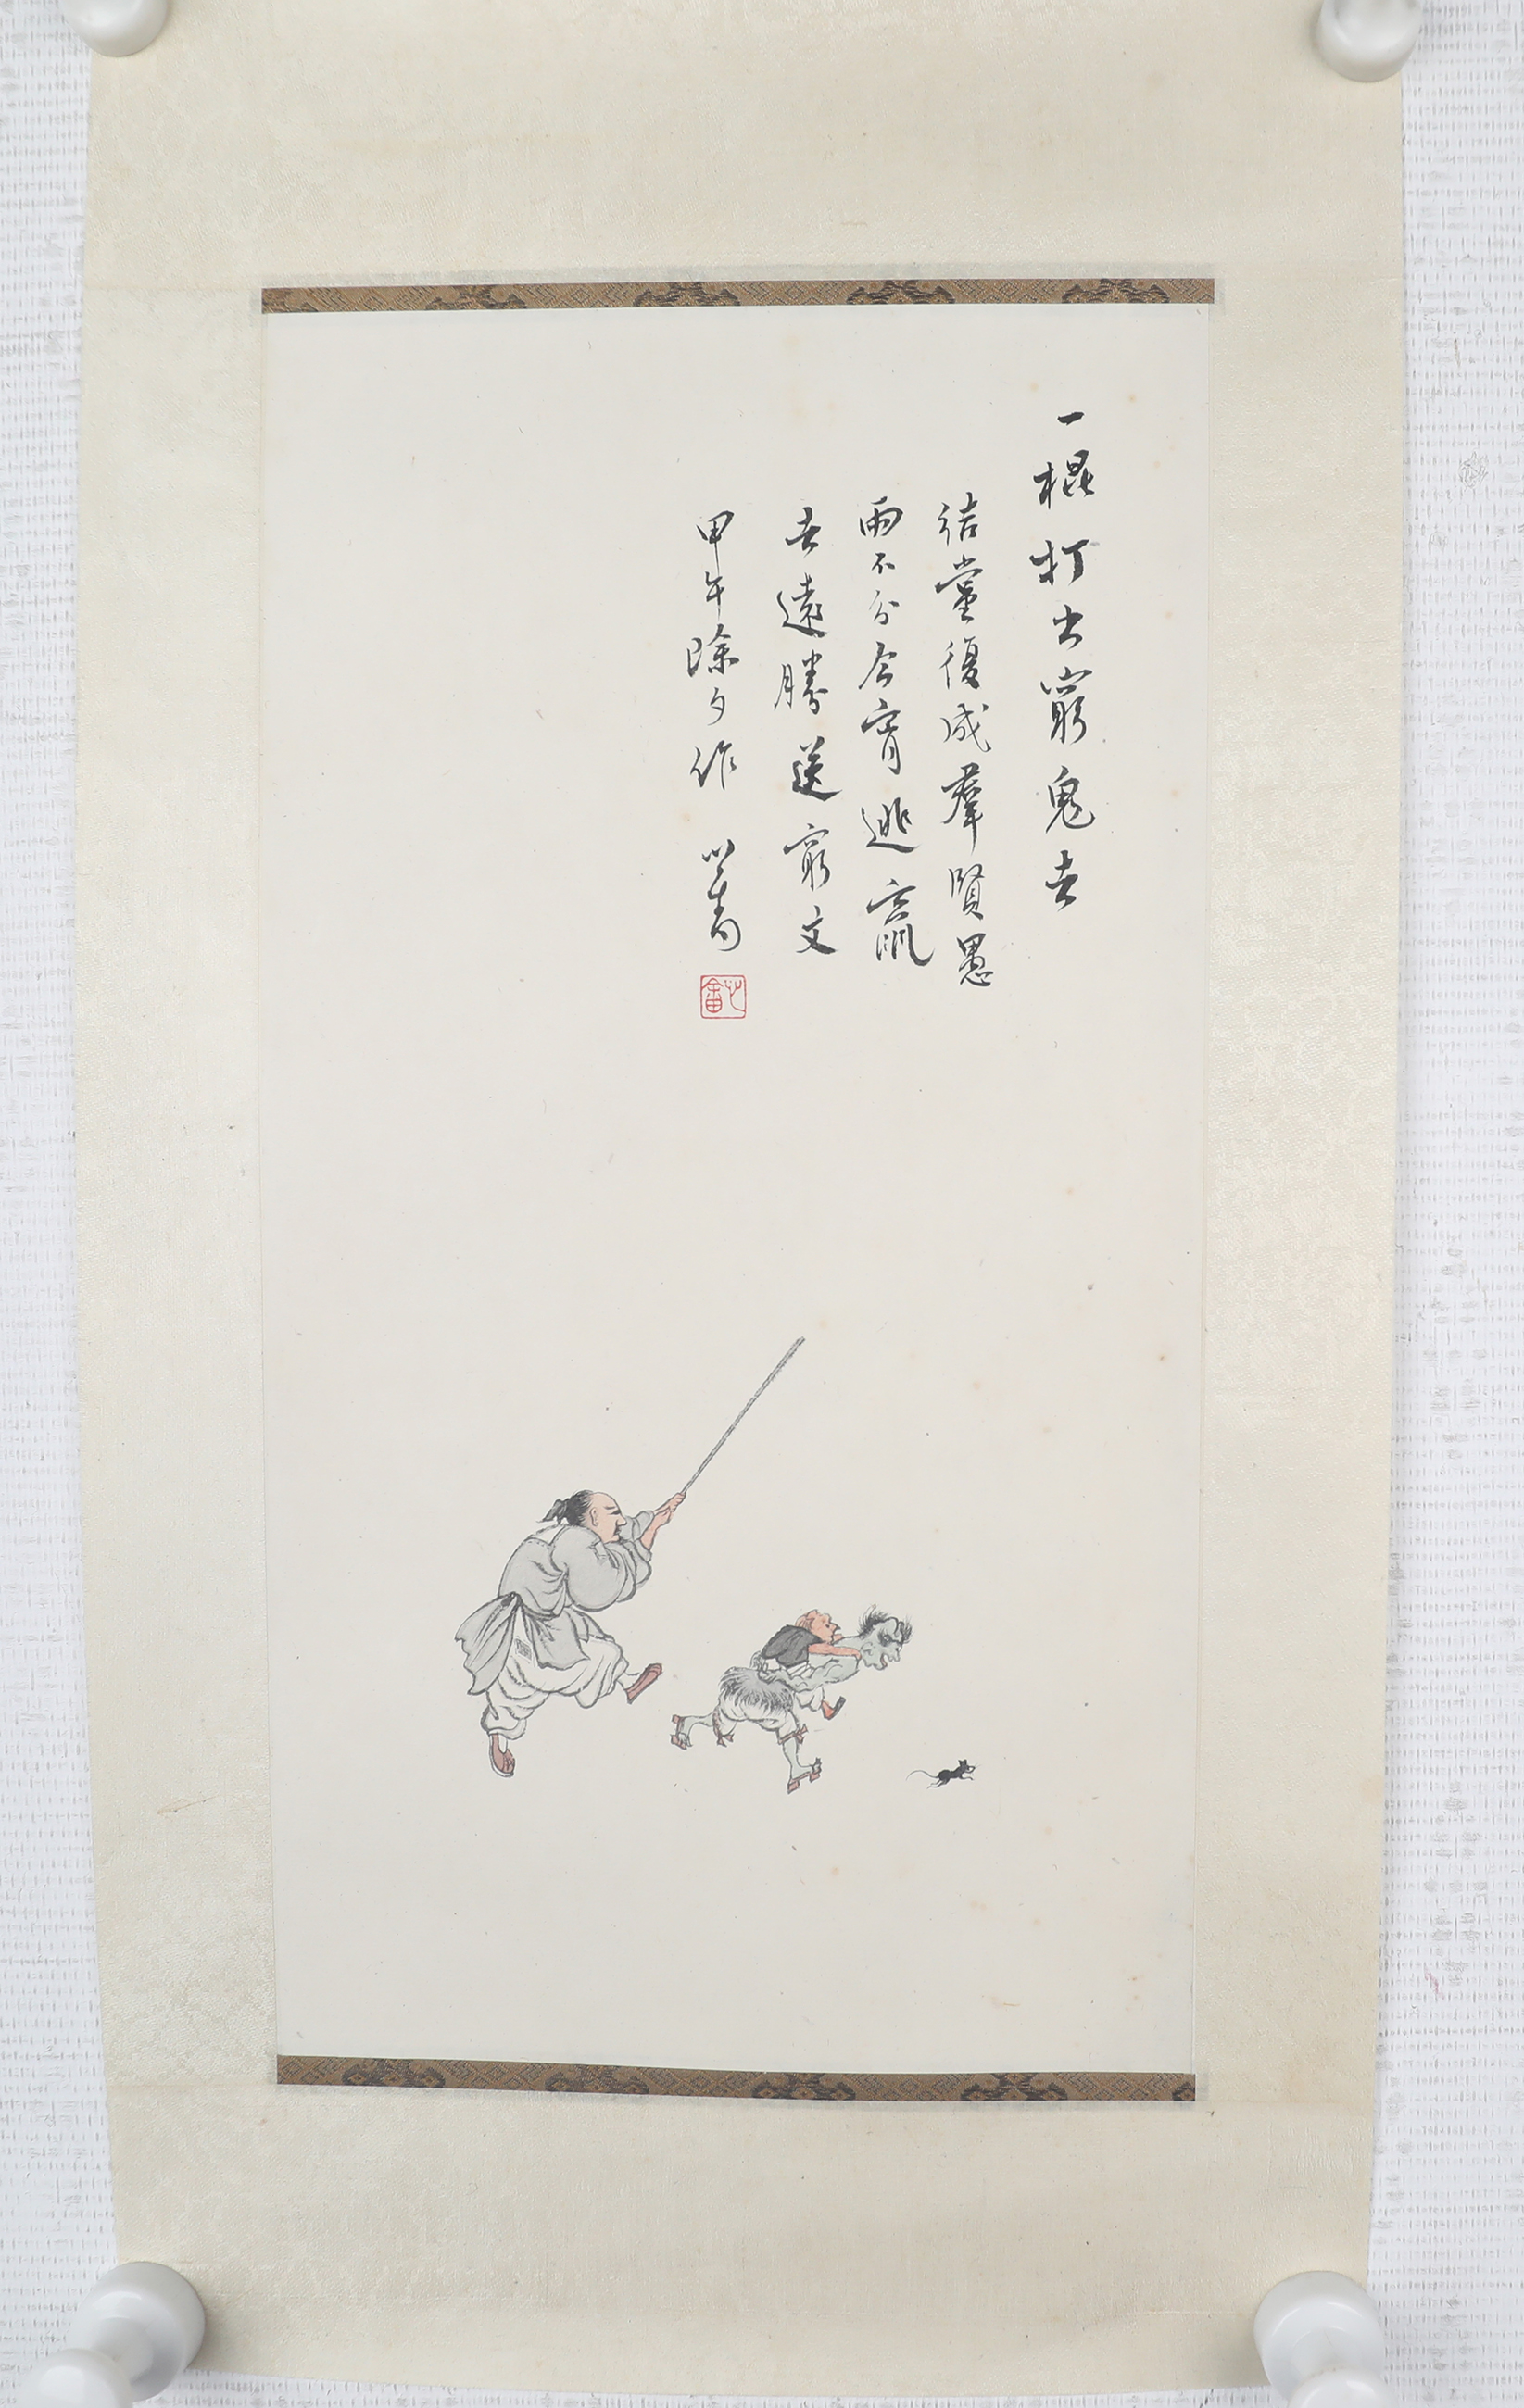 一棍打出窮鬼去
結黨復成羣賢愚
兩不分今宵逃竄
去遠勝送窮文
甲午除夕作 溥儒